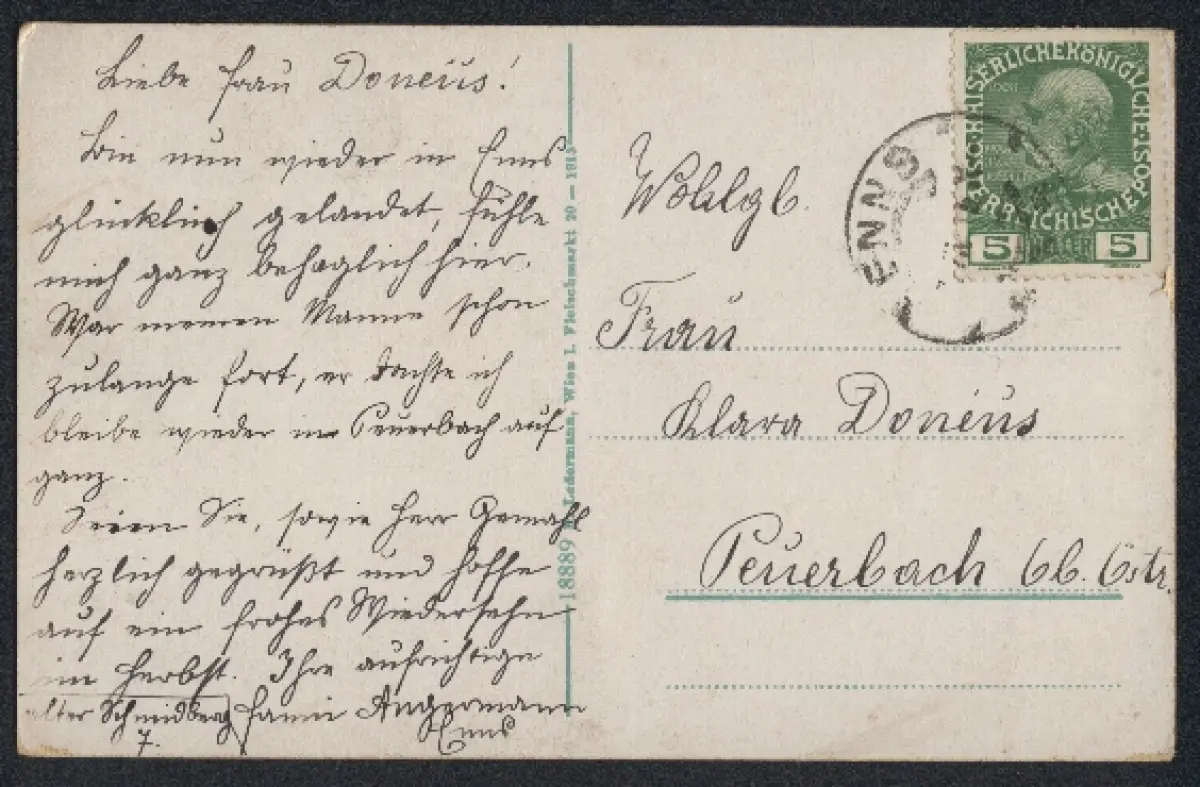 Liebe Frau Doneus!
Bin nun wieder in Enns
glücklich gelandet, fühle
mich ganz behaglich hier.
War meinem Manne schon
zulange fort, er dachte ich
bleibe wieder in Peuerbach auf
ganz.
Seien Sie, sowie Herr Gemahl
herzlich gegrüßt und hoffe
auf ein frohes Wiedersehn
im Herbst. Ihre aufrichtige
alter Schmidberg Fanni Angermann
7. Enns
18889 Ledermann, Wien I. Fleischmarkt 20 – 1913
Wohlgb.
Frau
Klara Doneus
Peuerbach Ob. Östr.
KAISERLICHEKÖNIGLICHE
ÖSTERREICHISCHEPOST
5 HELLER 5
ENNS